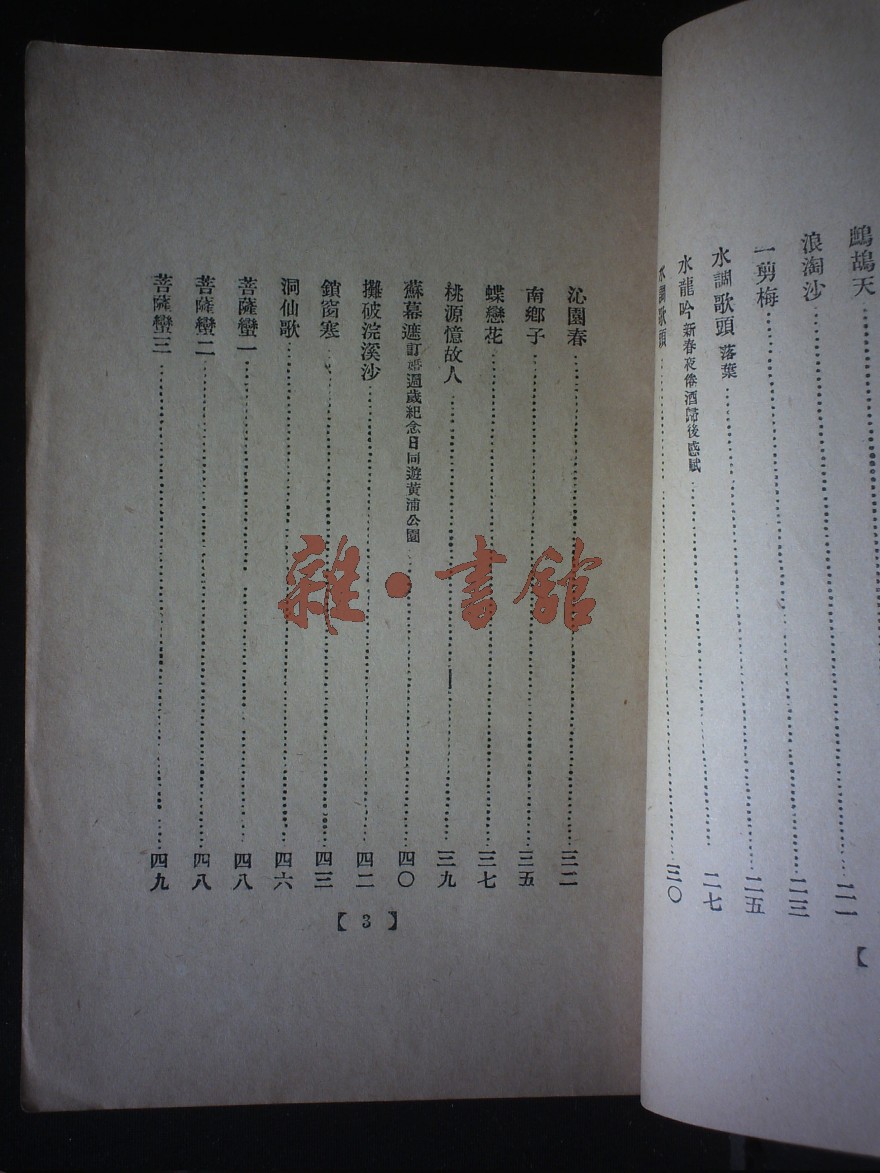 鷓鴣天……二一
浪淘沙……二三
一剪梅……二五
水調歌頭 落葉……二七
水龍吟 新春夜倦酒歸後感賦……三〇
水調歌頭……
【
沁園春……三二
南鄉子……三五
蝶戀花……三七
桃源憶故人……三九
蘇幕遮 訂婚週歲紀念日同遊黃浦公園……四〇
攤破浣溪沙……四二
鎖窗寒……四三
洞仙歌……四六
菩薩蠻一……四八
菩薩蠻二……四八
菩薩蠻三……四九
【3】
雜·書館